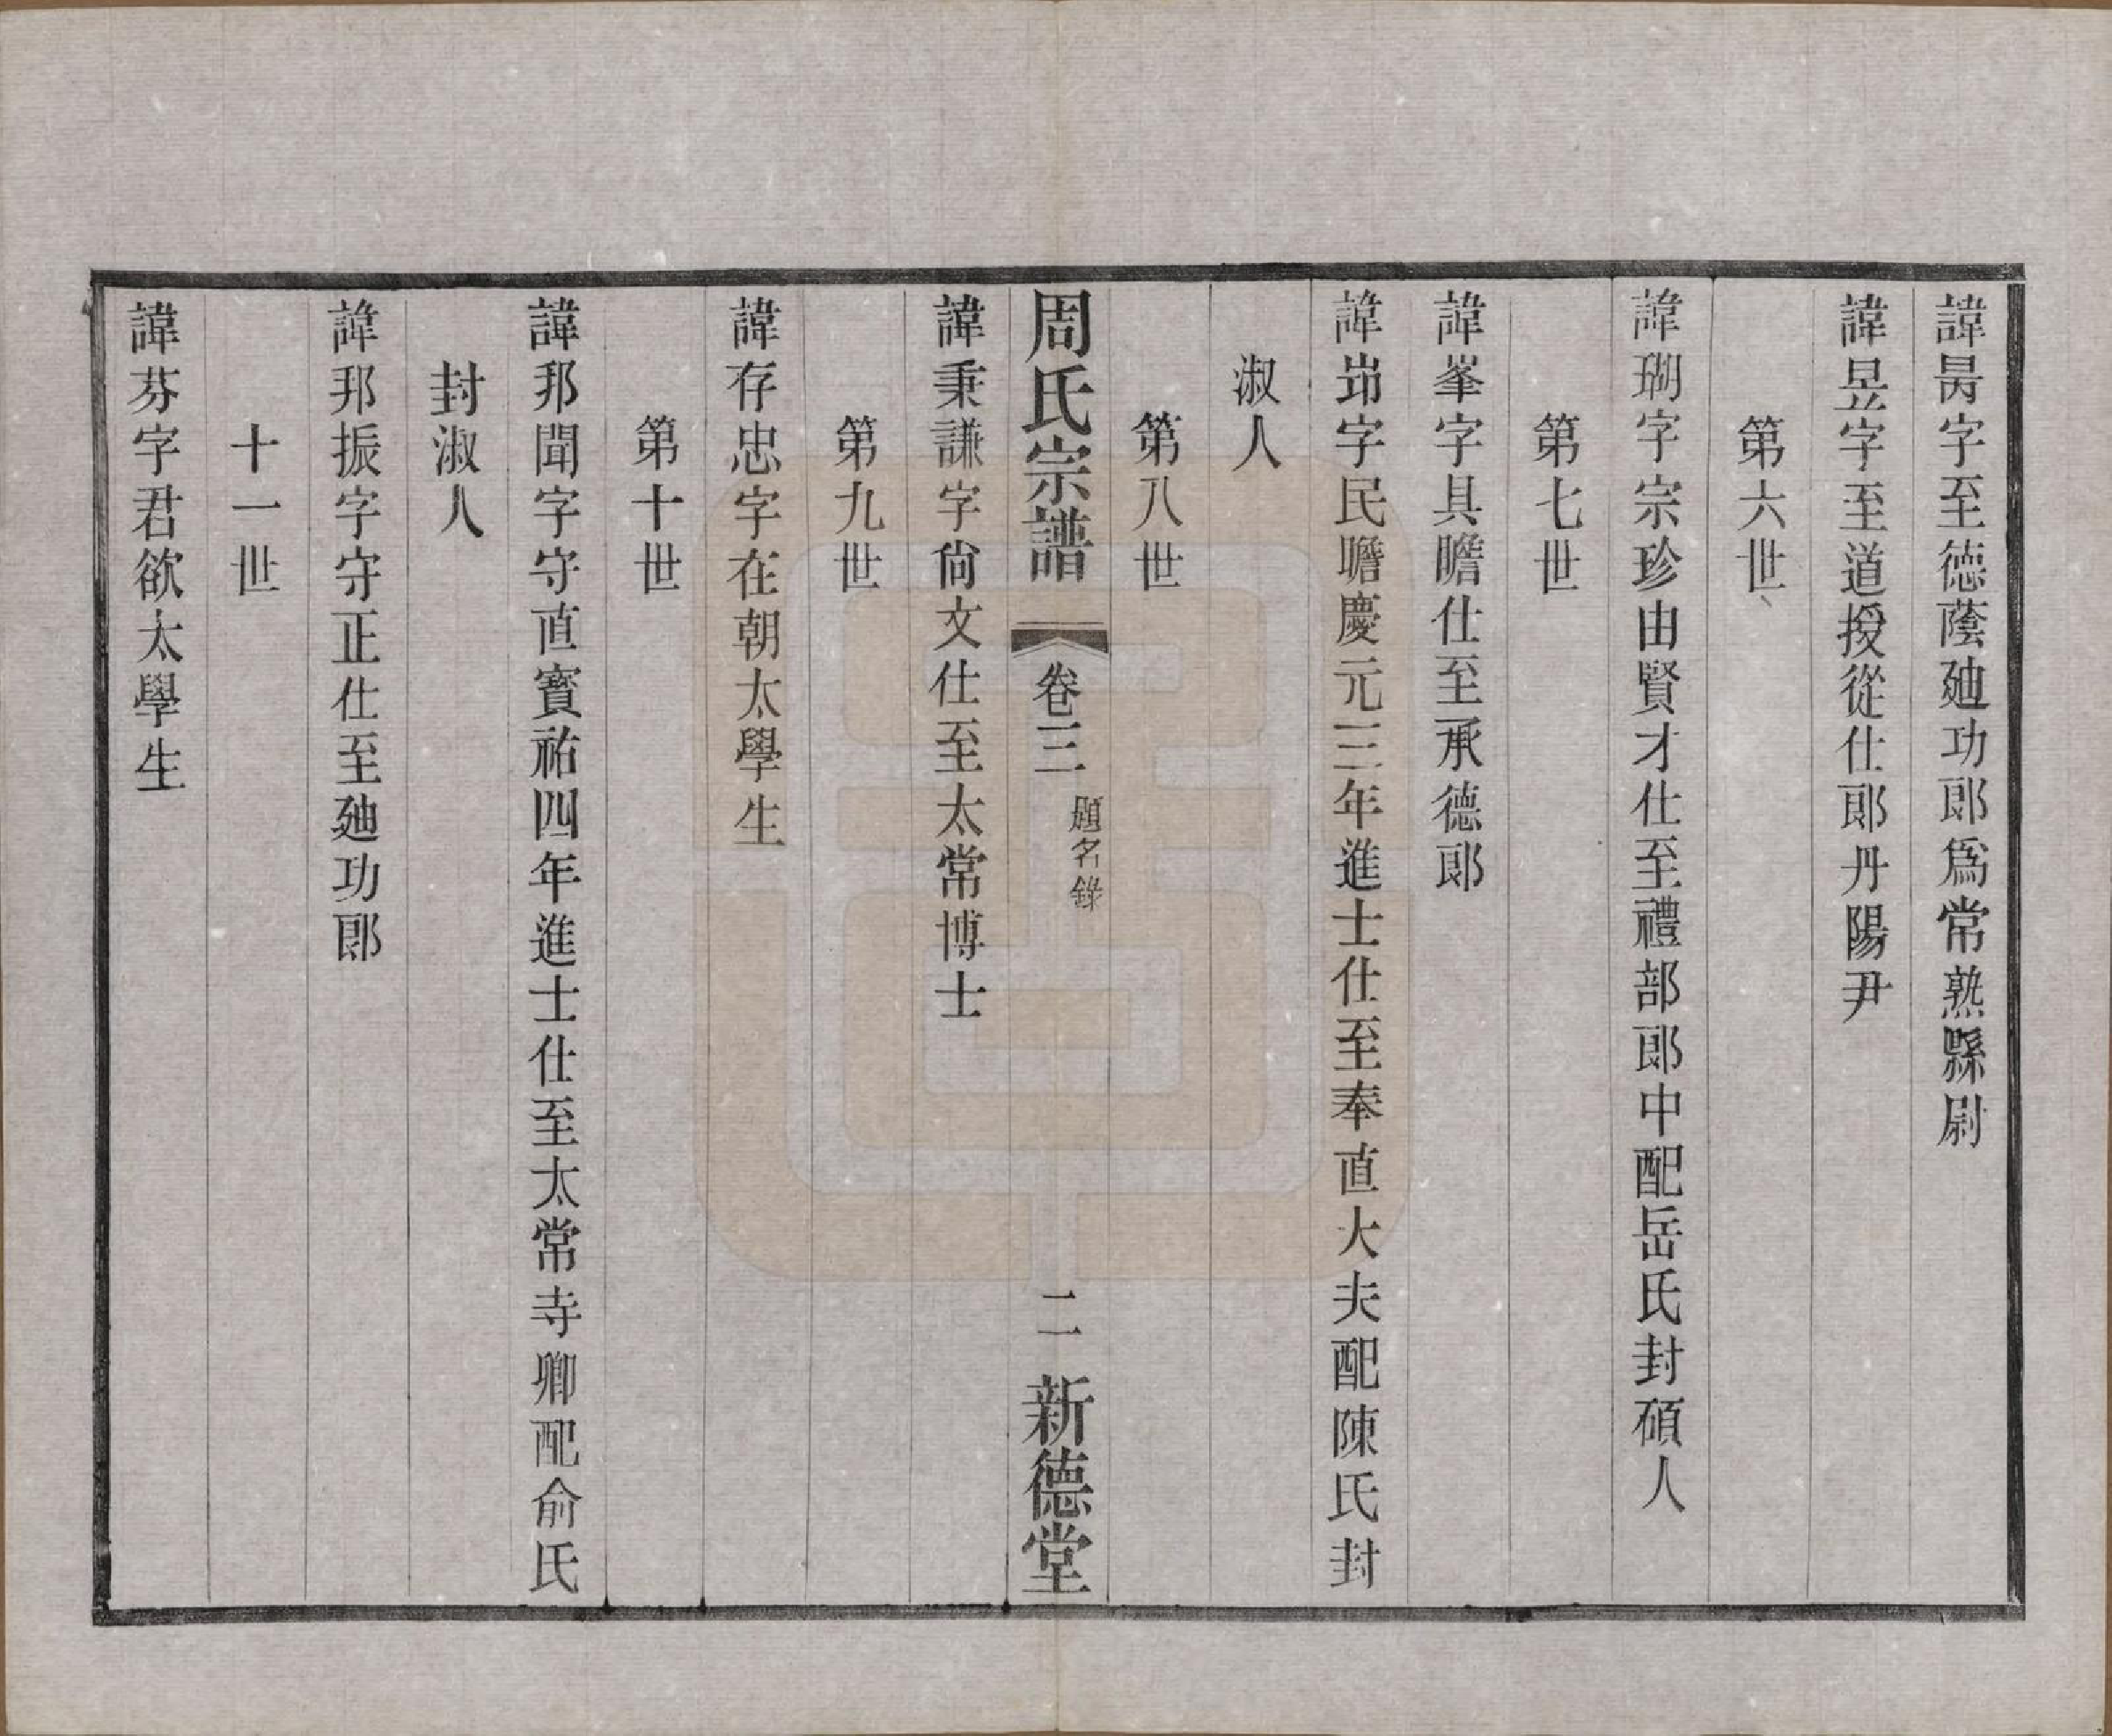 諱昺字至德蔭廸功郎爲常熟縣尉
諱昱字至道授從仕郎丹陽尹
第六世
諱瑚字宗珍由賢才仕至禮部郎中配岳氏封碩人
第七世
諱峯字具瞻仕至承德郎
諱峁字民瞻慶元三年進士仕至奉直大夫配陳氏封
淑人
第八世
周氏宗譜 卷三 題名錄 二 新德堂
諱秉謙字尙文仕至太常博士
第九世
諱存忠字在朝太學生
第十世
諱邦聞字守直寳祐四年進士仕至太常寺卿配俞氏
封淑人
諱邦振字守正仕至廸功郎
十一世
諱芬字君欲太學生